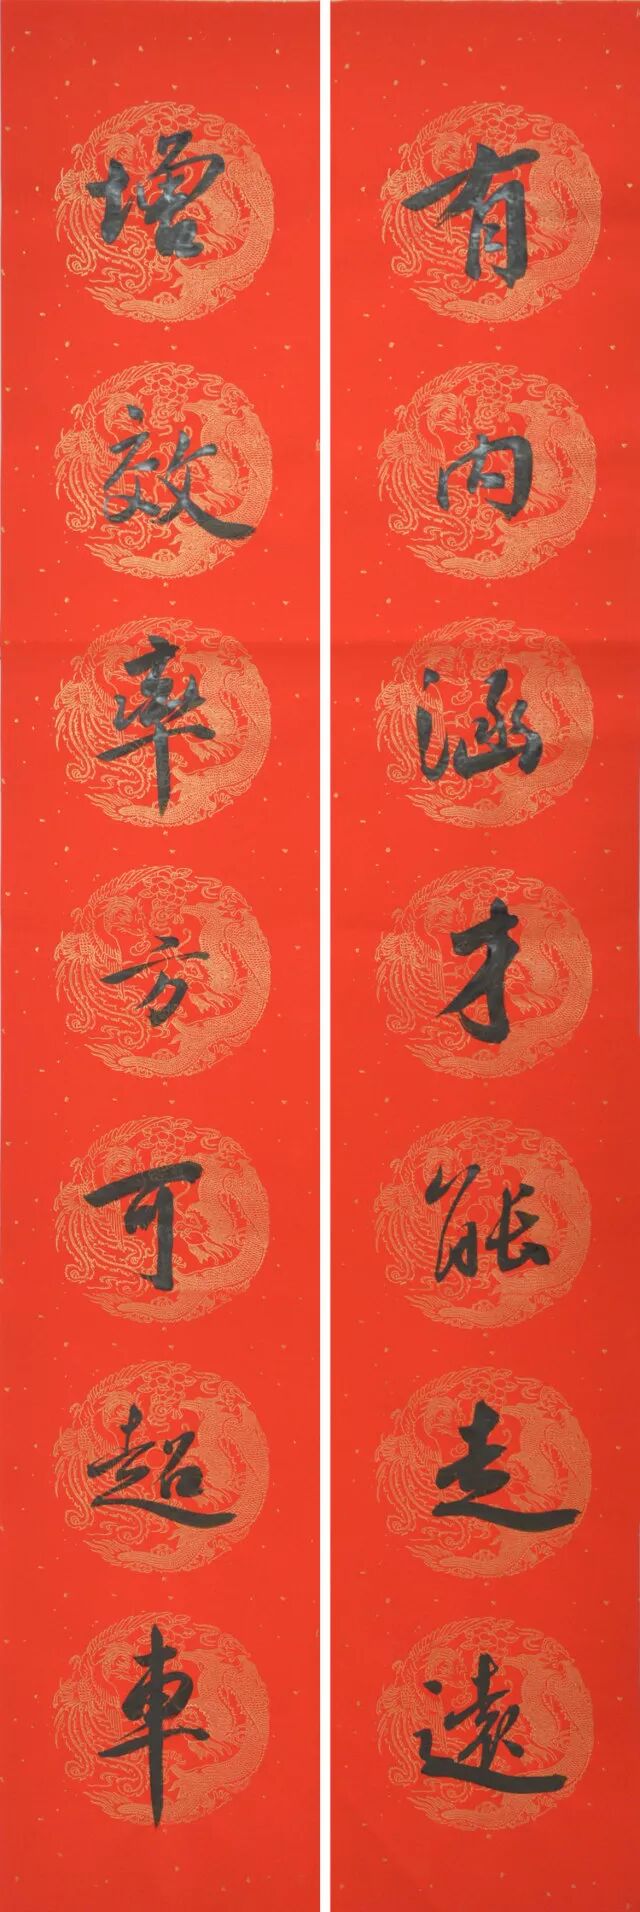 有内涵才能走遠
增效率方可超車